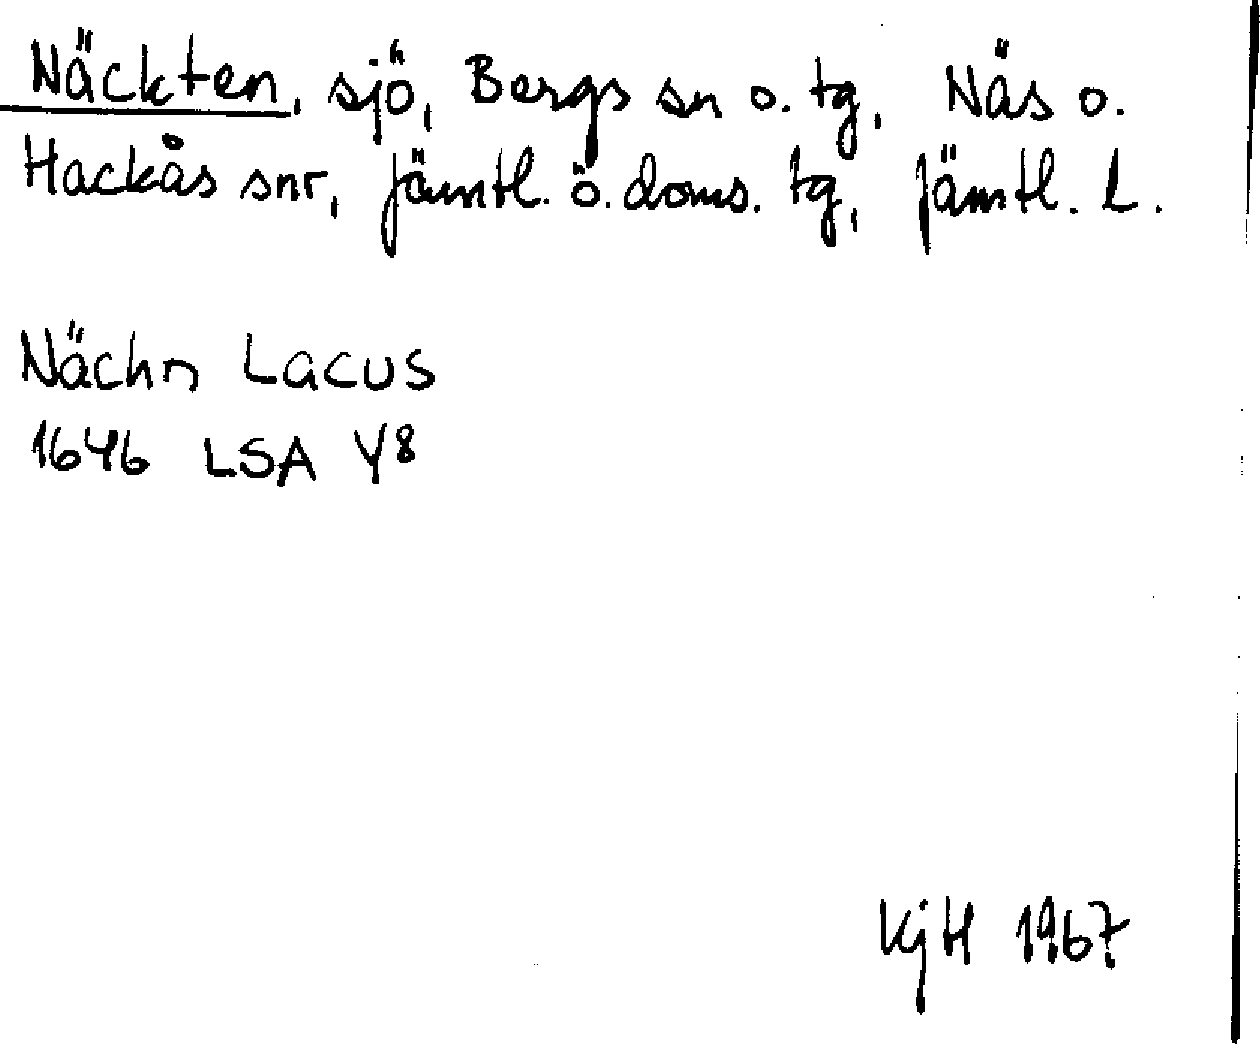 Näckten, sjö, Bergs sn o. tg, Näs o.
Hackås snr, Jämtl. ö. doms. tg, Jämtl. L.
Nächn Lacus
1646 LSA Y8
KjH 1967